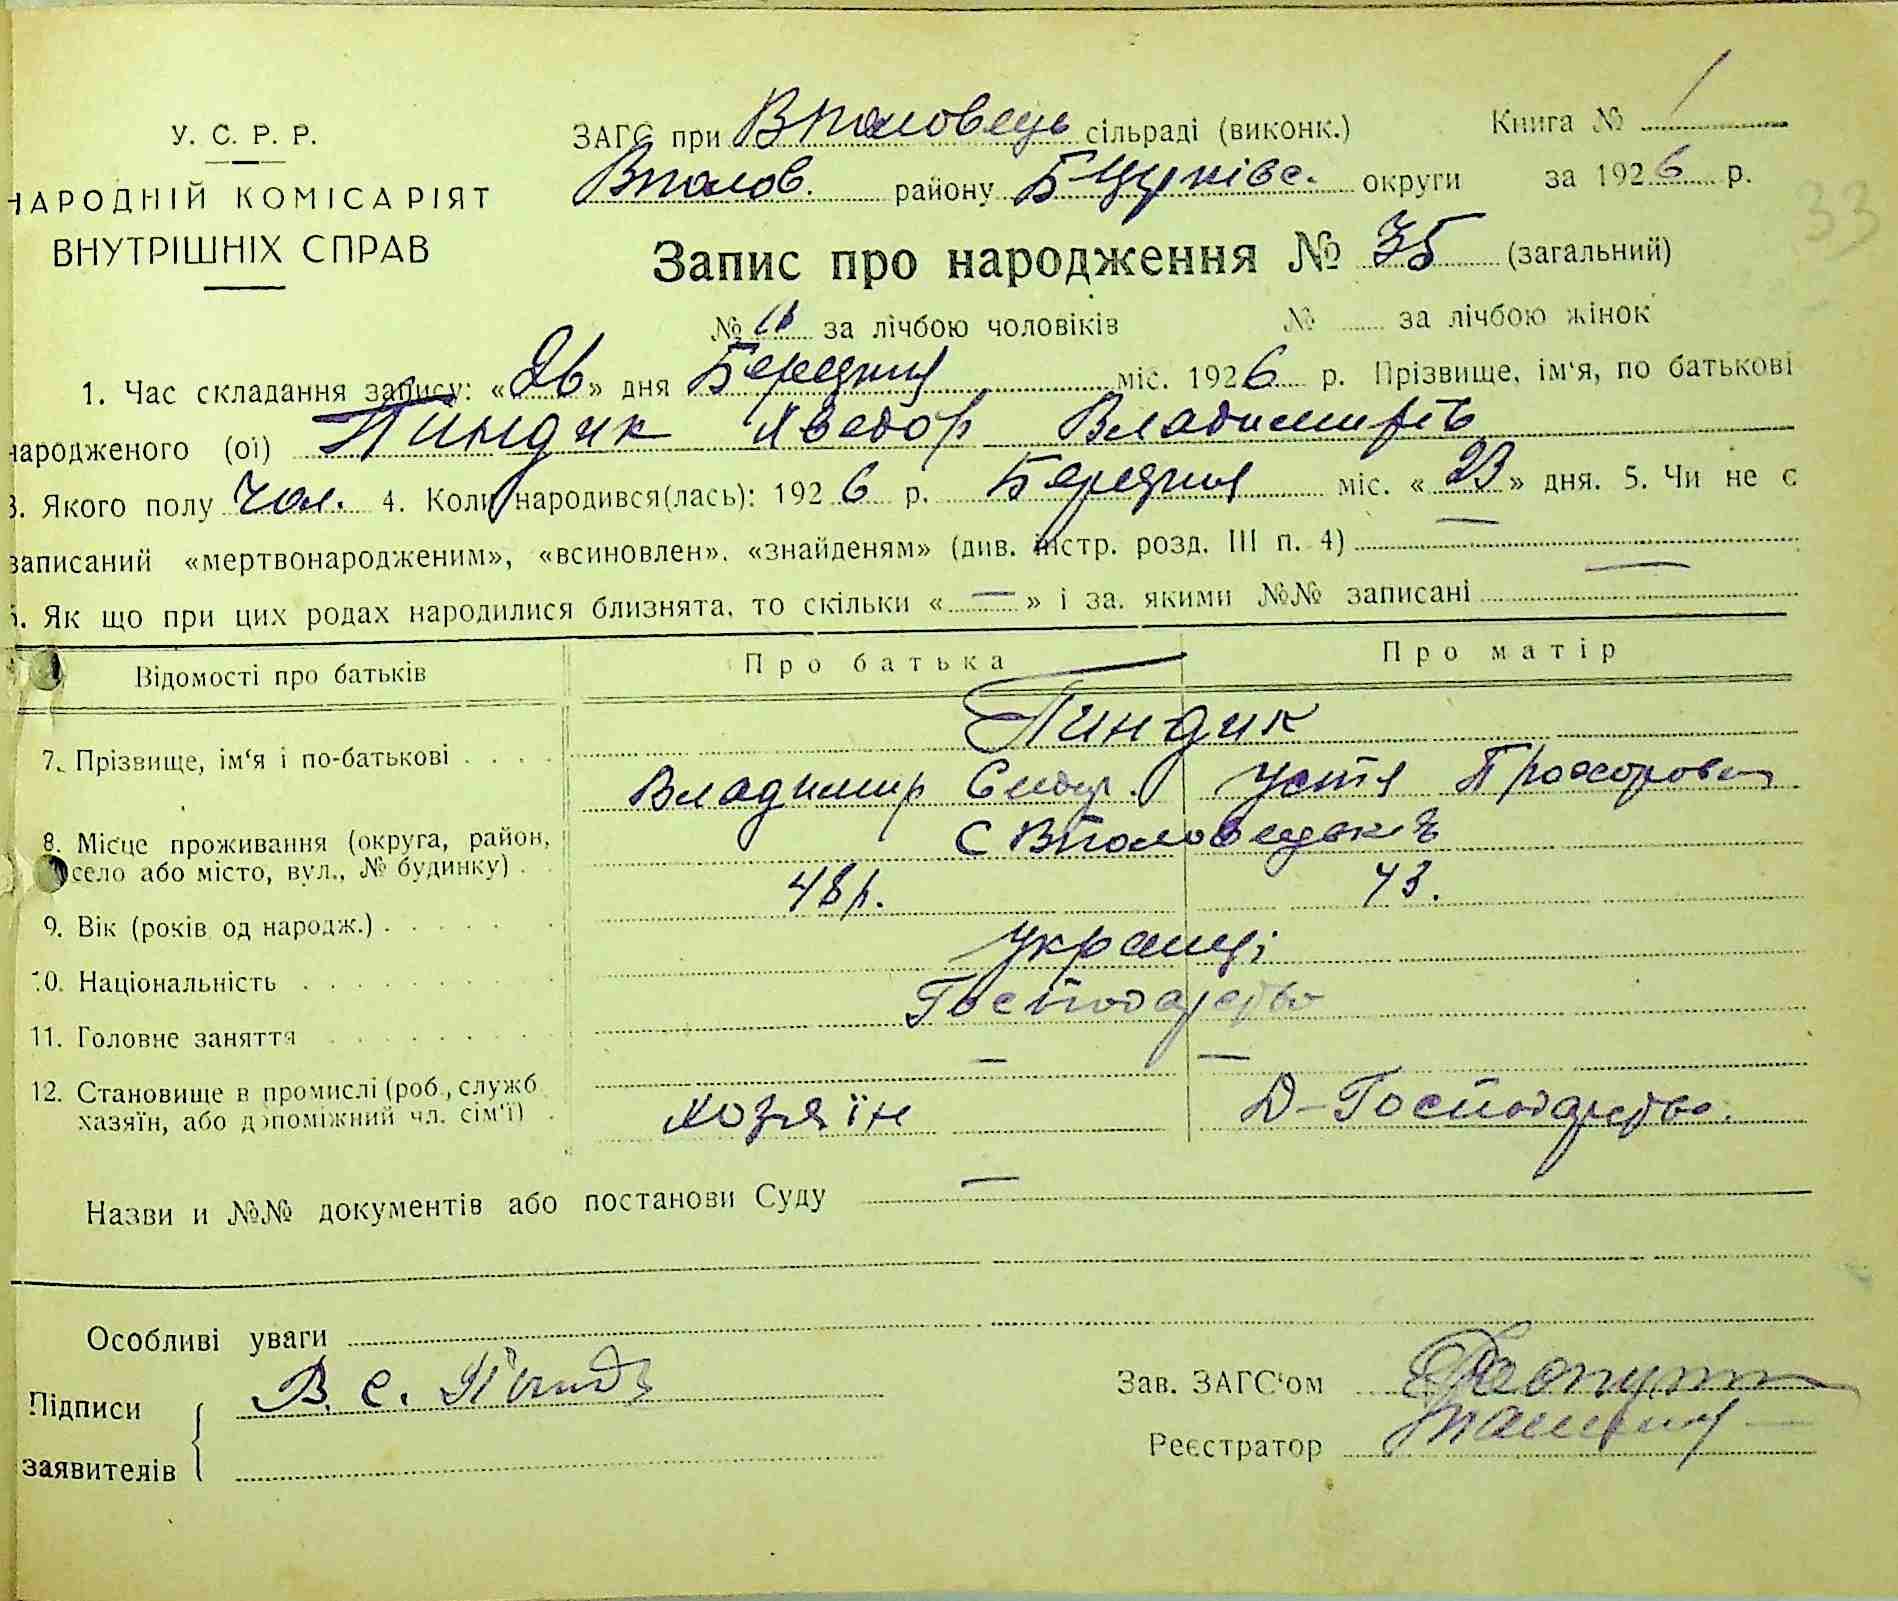 У. С. Р. Р.
НАРОДНІЙ КОМІСАРІЯТ
ВНУТРІШНІХ СПРАВ
ЗАГС при Вполовець сільраді (виконк.) Книга № 1
Вполов. району БЦерківс. округи за 1926 р.
33
Запис про народження № 35 (загальний)
№ за лічбою чоловіків № за лічбою жінок
1. Час складання запису: «26» дня Березня міс. 1926 р. Прізвище, ім'я, по батькові
народженого (ої) Пиндик Хведор Владимирів
3. Якого полу чол. 4. Коли народився(лась): 1926 р. Березня міс. «23» дня. 5. Чи не є
записаний «мертвонародженим», «всиновлен», «знайденям» (див. інстр. розд. III п. 4) —
6. Як що при цих родах народилися близнята, то скільки «—» і за якими №№ записані —
Відомості про батьків Про батька Про матір
7. Прізвище, ім'я і по-батькові Пиндик
Владимир Сидор. Устя Прохорова
8. Місце проживання (округа, район,
село або місто, вул., № будинку) С Вполовецьке
9. Вік (років од народж.) 48р. 43.
10. Національність Украінці
11. Головне заняття Господарство
12. Становище в промислі (роб., служб — —
хазяїн, або допоміжний чл. сім'ї) хозяїн Д-Господарство.
Назви и №№ документів або постанови Суду —
Особливі уваги
Підписи В. С. Пинд
заявителів
Зав. ЗАГС'ом
Реєстратор